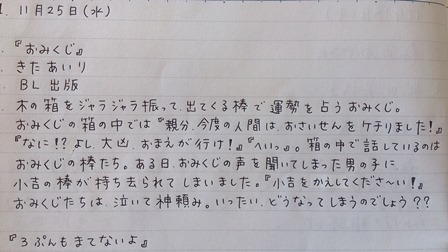 1. 11月25日(水)
『おみくじ』
きたあいり
BL出版
木の箱をジャラジャラ振って、出てくる棒で運勢を占うおみくじ。
おみくじの箱の中では『親分、今度の人間は、おさいせんをケチりました!』
『なに!?よし、大凶、おまえが行け!』『へいっ』。箱の中で話しているのは
おみくじの棒たち。ある日、おみくじの声を聞いてしまった男の子に
小吉の棒が持ち去られてしまいました。『小吉をかえしてくださ〜い!』
おみくじたちは、泣いて神頼み。いったい、どうなってしまうのでしょう??
『3ぷんもまてないよ』